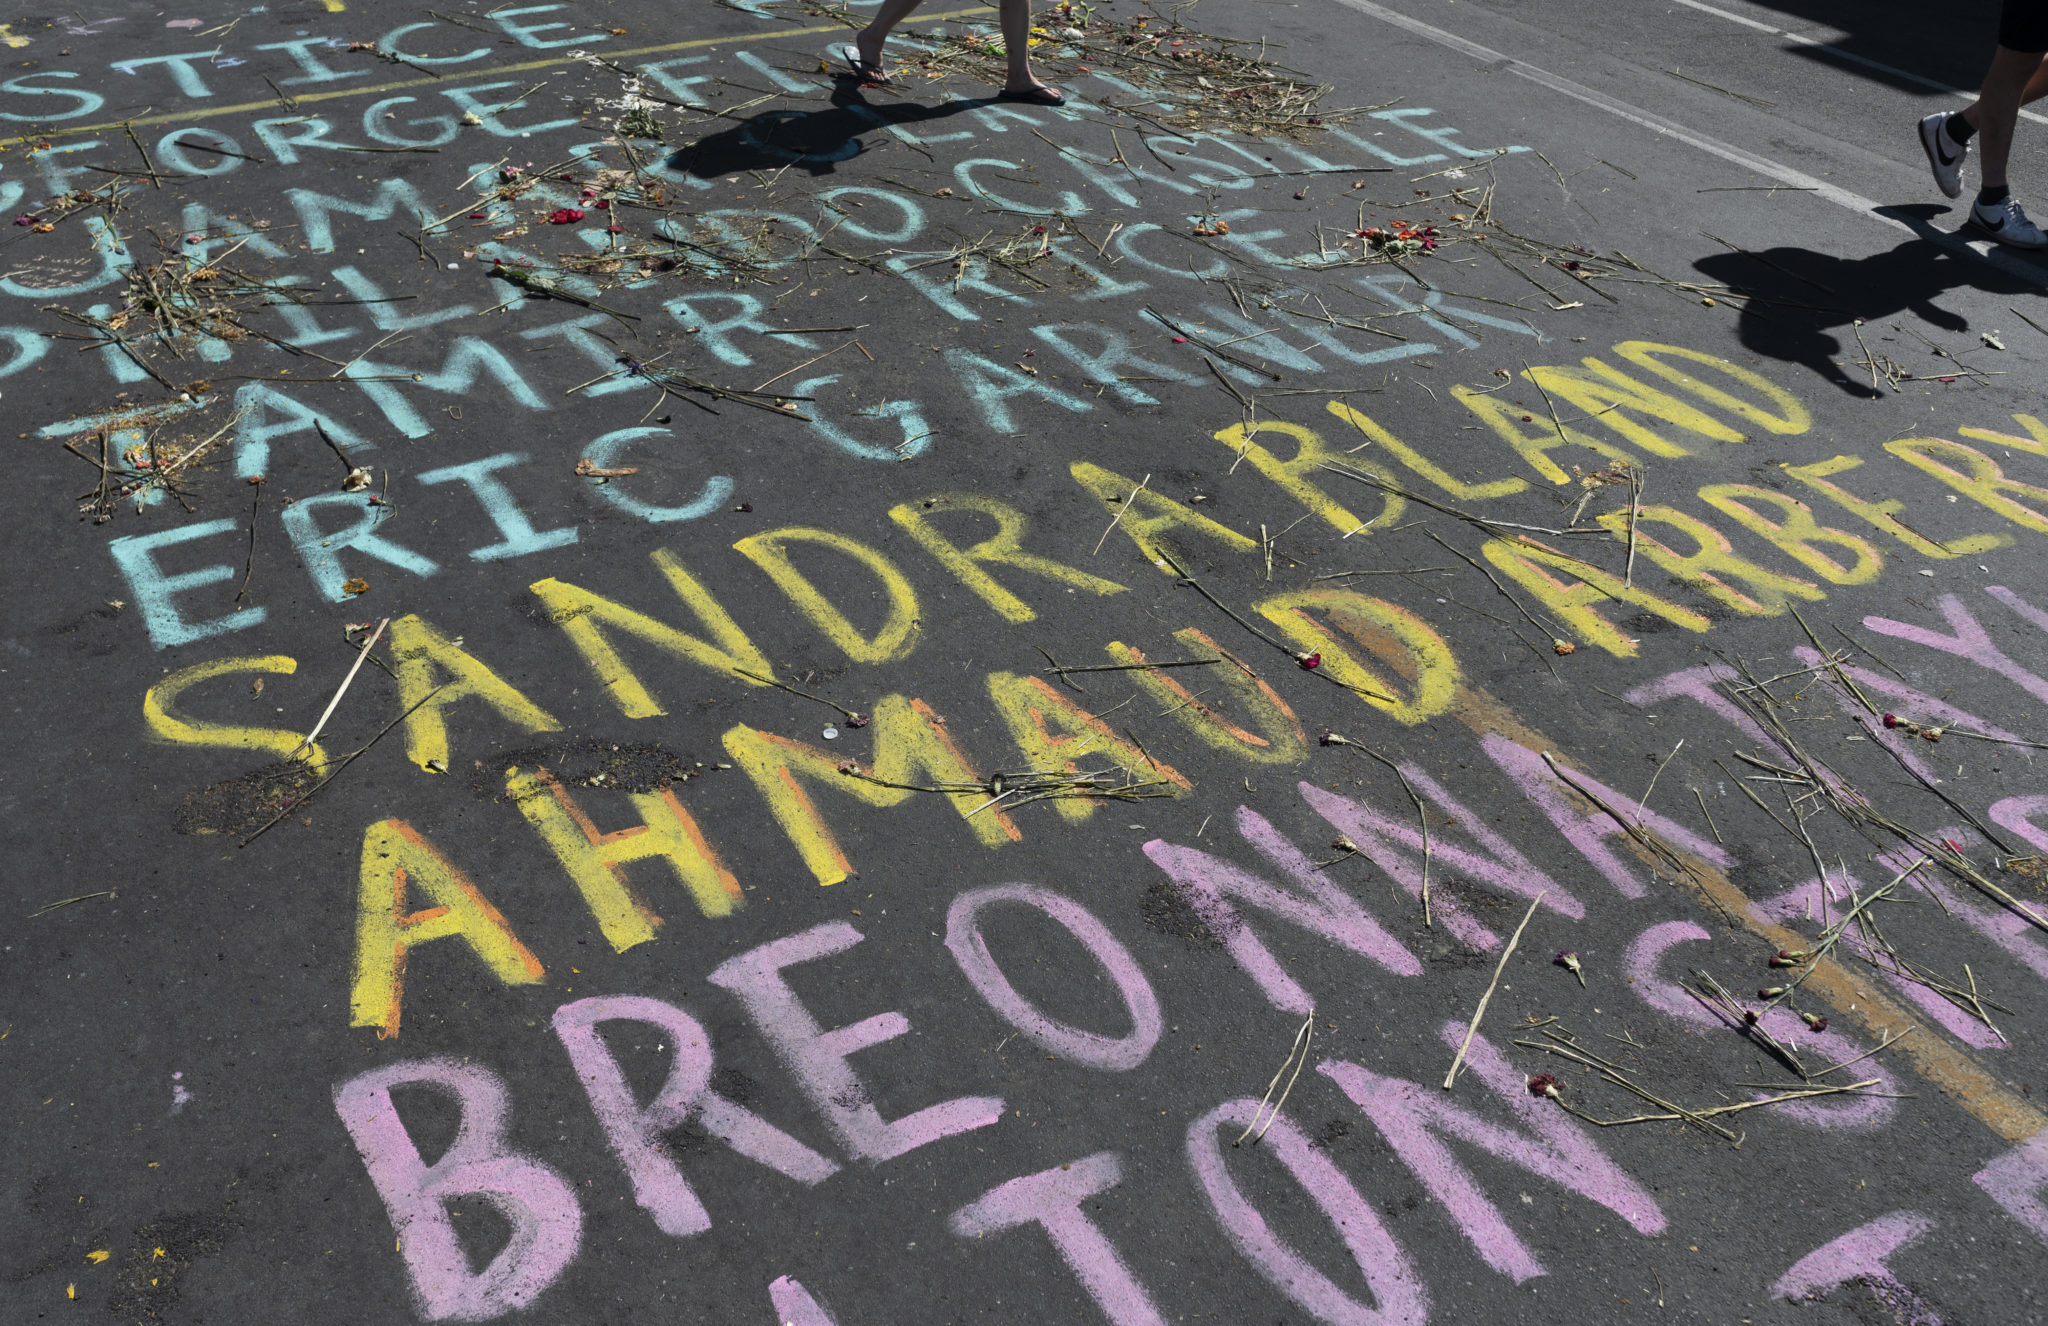 STICE
GEORGE FLOYD
JAMAR CLARK
PHILANDO CASTILE
TAMIR RICE
ERIC GARNER
SANDRA BLAND
AHMAUD ARBERY
BREONNA TAY
LTON STE